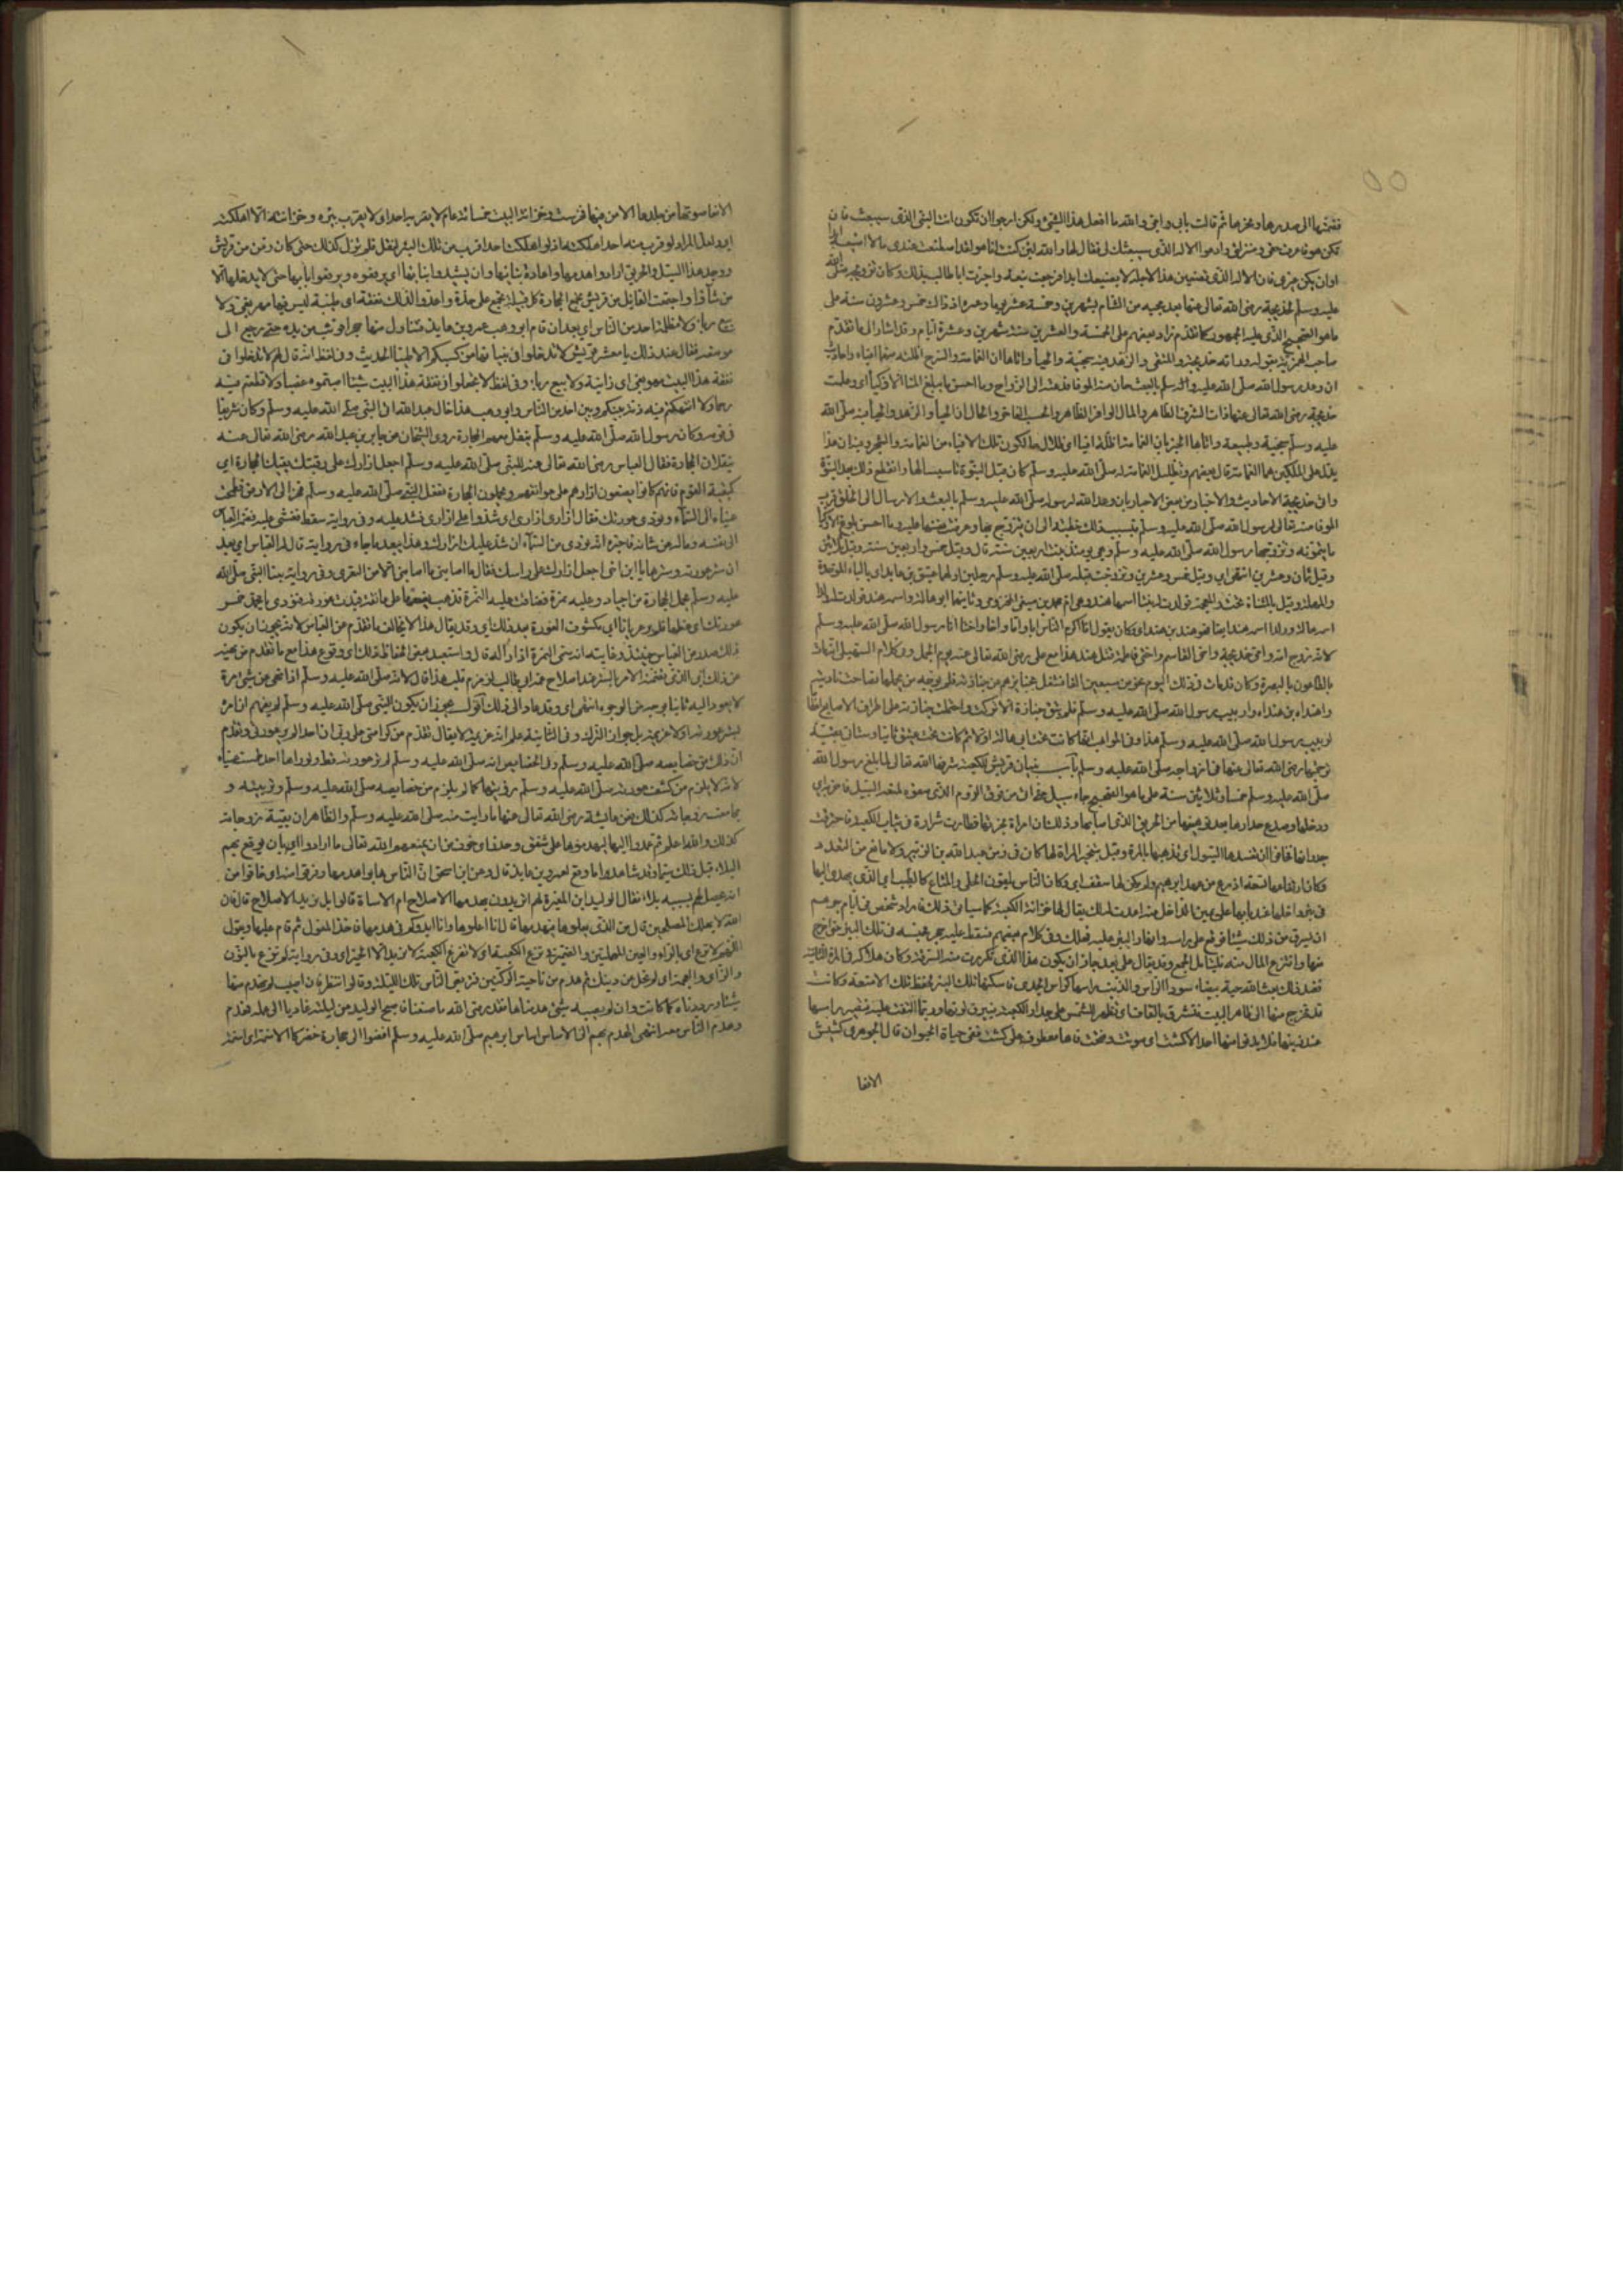 فضمتها الى صدرها ونحرها ثم قالت بابى وامى والله ما افعل هذا الشئ ولكن ارجو ان تكون انت النبى الذى سيبعث فان
تكن هو فاعرف حقى ومنزلتى وادعوا الاله الذى سيبعثك لى فقال لها والله لئن كنت انا هو لقد اصطنعت عندى مالا اضيعه ابدا
وان يكن غيرى فان الاله الذى تصنعين هذا لاجله لا يضيعك ابدا فرجعت
عليه وسلم لخديجة رضى الله تعالى عنها بعد مجيئه من الشام بشهرين وخمسة عشر يوما وعمره اذ ذاك خمس وعشرون سنة على
ما هو الصحيح الذى عليه الجمهور كما تقدم زاد بعضهم على الخمسة والعشرين سنة شهرين وعشرة ايام وقد اشار الى ما تقدم
صاحب الهمزية بقوله وراته خديجة والتقى والزهد فيه سجية والحيآء واتاها ان الغمامة والسرح اظلته منهما افياء واحاديث
ان وعد رسول الله صلى الله عليه وسلم بالبعث حان منه الوفاء فدعته الى الزواج وما احسن ما يبلغ المنا الاذكياء اى وعلمت
خديجة رضى الله تعالى عنها ذات الشرف الطاهر والمال الوافر الظاهر والحسب الفاخر والحال ان الحيآء والزهد والحيآء فيه صلى الله
عليه وسلم سجية وطبيعة واتاها الخبر بان الغمامة
يظل على الملكين هما الغمامة قال بعضهم وتظليل الغمامة له صلى الله عليه وسلم كان قبل النبوة تاسيسا لها وانقطع ذلك بعد النبوة
وانى خديجة الاحاديث والاخبار من بعض الاحبار بان وعد الله لرسوله صلى الله عليه وسلم بالبعث والارسال الى الخلق قريب
الوفا منه تعالى لرسول الله صلى الله عليه وسلم فبسبب ذلك خطبته الى ان يتزوج بها وعرضت نفسها عليه وما احسن بلوغ الاذكيا
ما يتمنونه وتزوجها رسول الله صلى الله عليه وسلم وهى يومئذ بنت اربعين سنة قال وقيل خمس واربعين سنة وقيل ثلاثين
وقيل ثمان وعشرين انتهى اى وقيل خمس وعشرين وتزوجت قبله صلى الله عليه وسلم برجلين اولهما عتيق بن عابد اى بالباء الموحدة
والمهملة وقيل بالمثناة تحت والمعجمة فولدت له بنتا اسمها هند وهى ام محمد بن صيفى المخزومى وثانيهما ابو هالة واسمه هند فولدت له ولدا
اسمه هالة وولدا اسمه هند ايضا فهو هند بن هند اى وكان يقول انا اكرم الناس ابا واما واخا واختا ابى رسول الله صلى الله عليه وسلم
لانه زوج امه وامى خديجة واخى القاسم واختى فاطمة قتل هند هذا مع على رضى الله تعالى عنه يوم الجمل وفى كلام السهيلى انه مات
بالطاعون بالبصرة وكان قد مات فى ذلك اليوم نحو من سبعين الفا فشغل الناس بجنائزهم عن جنازته فلم يوجد من يحملها فصاحت نادبته
واهنداه بن هنداه وا ربيب رسول الله صلى الله عليه وسلم فلم تبق جنازة الا تركت واحتملت جنازته على اطراف الاصابع
لربيب رسول الله صلى الله عليه وسلم هذا وفى المواهب انها كانت تحت ابى هالة اولا ثم كانت تحت عتيق ثانيا وستاتى بقية
ترجمتها رضى الله تعالى عنها فى ازواجه صلى الله عليه وسلم باب بنيان قريش الكعبة شرفها الله تعالى لما بلغ رسول الله
صلى الله عليه وسلم خمسا وثلاثين سنة على ما هو الصحيح جاء سيل حتى اتى من فوق الردم الذى صنعوه لمنعه السيل فاخربه اى
ودخلها وصدع جدارها بعد توهينها من الحريق الذى اصابها وذلك ان امراة بخرتها فطارت شرارة فى ثياب الكعبة فاحترقت
جدرانها فخافوا ان تفسدها السيول اى تذهبها بالمرة وقيل تبخير المراة لها كان فى زمن عبد الله بن الزبير ولا مانع من التعدد
وكان ارتفاعها تسعة اذرع من عهد ابرهيم ولم يكن لها سقف اى وكان الناس يلقون الحلى والمتاع كالطيب اى الذى يهدى اليها
فى بئر داخلها عند بابها على يمين الداخل منه اعدت لذلك يقال لها خزانة الكعبة كما سياتى ذلك فاراد شخص فى ايام جرهم
ان يسرق من ذلك شيئا فوقع على راسه وانهار البئر عليه فهلك وفى كلام بعضهم فسقط عليه حجر فحبسه فى تلك البئر حتى اخرج
منها وانتزع المال منه فليتامل الجمع وقد يقال على بعد جاز ان يكون هذا الذى تكررت منه السرقة وكان هلاكه فى المرة الثانية
فعند ذلك بعث الله حية بيضاء سودا الراس والذنب راسها كراس الجدى فاسكنها تلك البئر لحفظ تلك الامتعة وكانت
قد تخرج منها الى ظاهر البيت فتشرق بالقاف اى تظهر للشمس على جدار الكعبة فيبرق لونها وربما التفت عليه فتصير راسها
عند ذنبها فلا يدنو منها احد الا كشت اى صوتت وفتحت فاها معطوف على كشت ففى حياة الحيوان قال الجوهرى كشيش
الافعا
الافعا صوتها من جلدها لا من فيها فحرست بئره وخزانة البيت خمسمائة عام لا يقربه احد اى لا يقرب بئره وخزانته الا اهلكته
اى ولعل المراد لو قرب منه احد اهلكته اذ لو اهلكت احدا قرب من تلك البئر لنقل فلم تزل كذلك حتى كان زمن من قريش
ووجد هذا السيل والحريق ارادوا هدمها واعادة بنائها وان يشيدوا بنيانها اى يرفعوه ويرفعوا بابها حتى لا يدخلها الا
من شآؤا واجتمعت القبائل من قريش تجمع الحجارة كل قبيلة تجمع على حدة واعدوا لذلك نفقة اى طيبة ليس فيها مهر بغى ولا
بيع ربا ولا مظلمة احد من الناس اى بعد ان قام ابو وهب عمرو بن عايذ فتناول منها حجرا فوثب من يده حتى رجع الى
موضعه فقال عند ذلك يا معشر قريش لا تدخلوا فى بنيانها من كسبكم الا طيبا الحديث وفى لفظ انه قال لهم لا تدخلوا فى
نفقة هذا البيت مهر بغى اى زانية ولا بيع ربا وفى لفظ لا تجعلوا فى نفقة هذا البيت شيئا اصبتموه غصبا ولا قطعتم فيه
رحما ولا انتهكتم فيه ذمة بينكم وبين احد من الناس وابو وهب هذا خال عبد الله ابى النبى صلى الله عليه وسلم وكان شريفا
فى قومه وكان رسول الله صلى الله عليه وسلم ينقل معهم الحجارة روى الشيخان عن جابر بن عبد الله رضى الله تعالى عنه
ينقلان الحجارة فقال العباس رضى الله تعالى عنه للنبى صلى الله عليه وسلم اجعل ازارك على رقبتك يقيك الحجارة اى
كبقية القوم فانهم كانوا يضعون ازارهم على عواتقهم ويحملون الحجارة ففعل النبى صلى الله عليه وسلم فخر الى الارض فطمحت
عيناه الى السمآء ونودى عورتك فقال ازارى ازارى اى شدوا على ازارى فشد عليه وفى رواية سقط فغشى عليه فضمه العباس
الى نفسه وساله عن شانه فاخبره انه نودى من السمآء ان شد عليك ازارك وهذا يبعد ما جاء فى رواية قال له العباس اى بعد
ان ستر عورته وسترها يا ابن اخى اجعل ازارك على راسك فقال ما اصابنى ما اصابنى الا من التعرى وفى رواية بينا النبى صلى الله
عليه وسلم يحمل الحجارة من اجياد وعليه نمرة فضاقت عليه النمرة فذهب يضعها على عاتقه فبدت عورته فنودى يا محمد خمر
عورتك اى غطها فلم ير عريانا اى مكشوف العورة بعد ذلك اى وقد يقال هذا لا يخالف ما تقدم عن العباس لانه يجوز ان يكون
ذلك صدر من العباس حينئذ وغايته انه سمى النمرة ازارا له قال واستبعد بعض الحفاظ ذلك اى وقوع هذا مع ما تقدم من نهيه
عن ذلك اى الذى تضمنه الامر بالستر عند اصلاح عمه ابى طالب لزمزم قبل هذا قال لانه صلى الله عليه وسلم اذا نهى عن شئ مرة
لا يعود اليه ثانيا بوجه من الوجوه انتهى اى وقد عاد الى ذلك اقول يجوز ان يكون النبى صلى الله عليه وسلم لم يفهم ان امره
بستر عورته اولا عزيمة بل جواز الترك وفى الثانية علم انه عزيمة لا يقال تقدم من كرامتى على ربى ان احدا لم ير عورتى وتقدم
ان ذلك من خصايصه صلى الله عليه وسلم وفى الخصايص انه صلى الله عليه وسلم لم تر عورته قط ولو راها احد طمست عيناه
لانه لا يلزم من كشف عورته صلى الله عليه وسلم رؤيتها كما لم يلزم من خصايصه صلى الله عليه وسلم وتربيته و
مجامعته زوجاته كذلك فعن عايشة رضى الله تعالى عنها ما رايت منه صلى الله عليه وسلم والظاهر ان بقية زوجاته
كذلك والله اعلم ثم عمدوا اليها ليهدموها على شفق وحذر اى خوف من ان يمنعهم الله تعالى ما ارادوا اى بان يوقع بهم
البلاء قبل ذلك سيما وقد شاهدوا ما وقع لعمرو بن عايذ قال وعن ابن اسحق ان الناس هابوا هدمها وفرقوا منه اى خافوا من
انه يحصل لهم بسببه بلاء فقال الوليد ابن المغيرة لهم اتريدون بهدمها الاصلاح ام الاساة قالوا بل نريد الاصلاح قال فان
الله لا يهلك المصلحين قال من الذى يعلوها فيهدمها قال انا اعلوها وانا ابدؤكم فى هدمها فاخذ المعول ثم قام عليها ويقول
اللهم لا ترع اى بالراء والعين المهملتين والضمير فى ترع الكعبة اى لا تفزع الكعبة لا نريد الا الخير اى وفى رواية لم نزغ بالنون
والزاى والمعجمة اى لم نمل عن دينك ثم هدم من ناحية الركنين فتربص الناس تلك الليلة وقالوا ننتظر فان اصيب لم نهدم منها
شيئا ورددناه كما كانت وان لم يصبه شئ هدمناها فقد رضى الله ما صنعنا فاصبح الوليد من ليلته غاديا الى عمله فهدم
وهدم الناس معه انتهى الهدم بهم الى الاساس اساس ابرهيم صلى الله عليه وسلم افضوا الى حجارة خضر كالاسنمة اى اسنمة